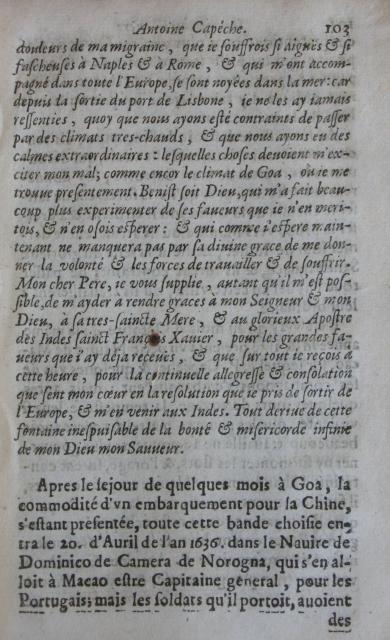 Antoine Capéche. 103
douleurs de ma migraine, que ie souffrois si aiguës & si
fascheuses à Naples & à Rome, & qui m'ont accom-
pagné dans toute l'Europe, se sont noyées dans la mer: car
depuis la sortie du port de Lisbone, ie ne les ay iamais
ressenties, quoy que nous ayons esté contraints de passer
par des climats tres-chauds, & que nous ayons eu des
calmes extraordinaires: lesquelles choses deuoient m'ex-
citer mon mal; comme encor le climat de Goa, où ie me
trouue presentement. Benist soit Dieu, qui m'a fait beau-
coup plus experimenter de ses faueurs que ie n'en meri-
tois, & n'en osois esperer: & qui comme i'espere main-
tenant ne manquera pas par sa diuine grace de me don-
ner la volonté & les forces de trauailler & de souffrir.
Mon cher Pere, ie vous supplie, autant qu'il m'est pos-
sible, de m'ayder à rendre graces à mon Seigneur & mon
Dieu, à sa tres-saincte Mere, & au glorieux Apostre
des Indes sainct François Xauier, pour les grandes fa-
ueurs que i'ay déja receuës, & que sur tout ie reçois à
cette heure, pour la continuelle allegresse & consolation
que sent mon cœur en la resolution que ie pris de sortir de
l'Europe, & m'en venir aux Indes. Tout deriue de cette
fontaine inespuisable de la bonté & misericorde infinie
de mon Dieu mon Sauueur.
Apres le sejour de quelques mois à Goa, la
commodité d'vn embarquement pour la Chine,
s'estant présentée, toute cette bande choisie en-
tra le 20. d'Auril de l'an 1636. dans le Nauire de
Dominico de Camera de Norogna, qui s'en al-
loit à Macao estre Capitaine general, pour les
Portugais; mais les soldats qu'il portoit, auoient
des